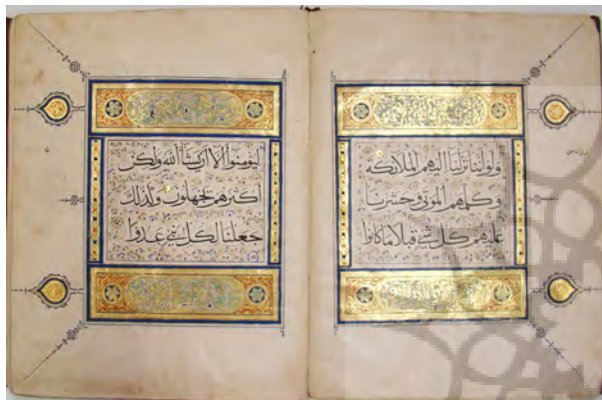 ولو اننا نزلنا اليهم الملائكة
وكلمهم الموتى وحشرنا
عليهم كل شيء قبلا ما كانوا
ليؤمنوا الا ان يشاء الله ولكن
اكثرهم يجهلون وكذلك
جعلنا لكل نبي عدوا